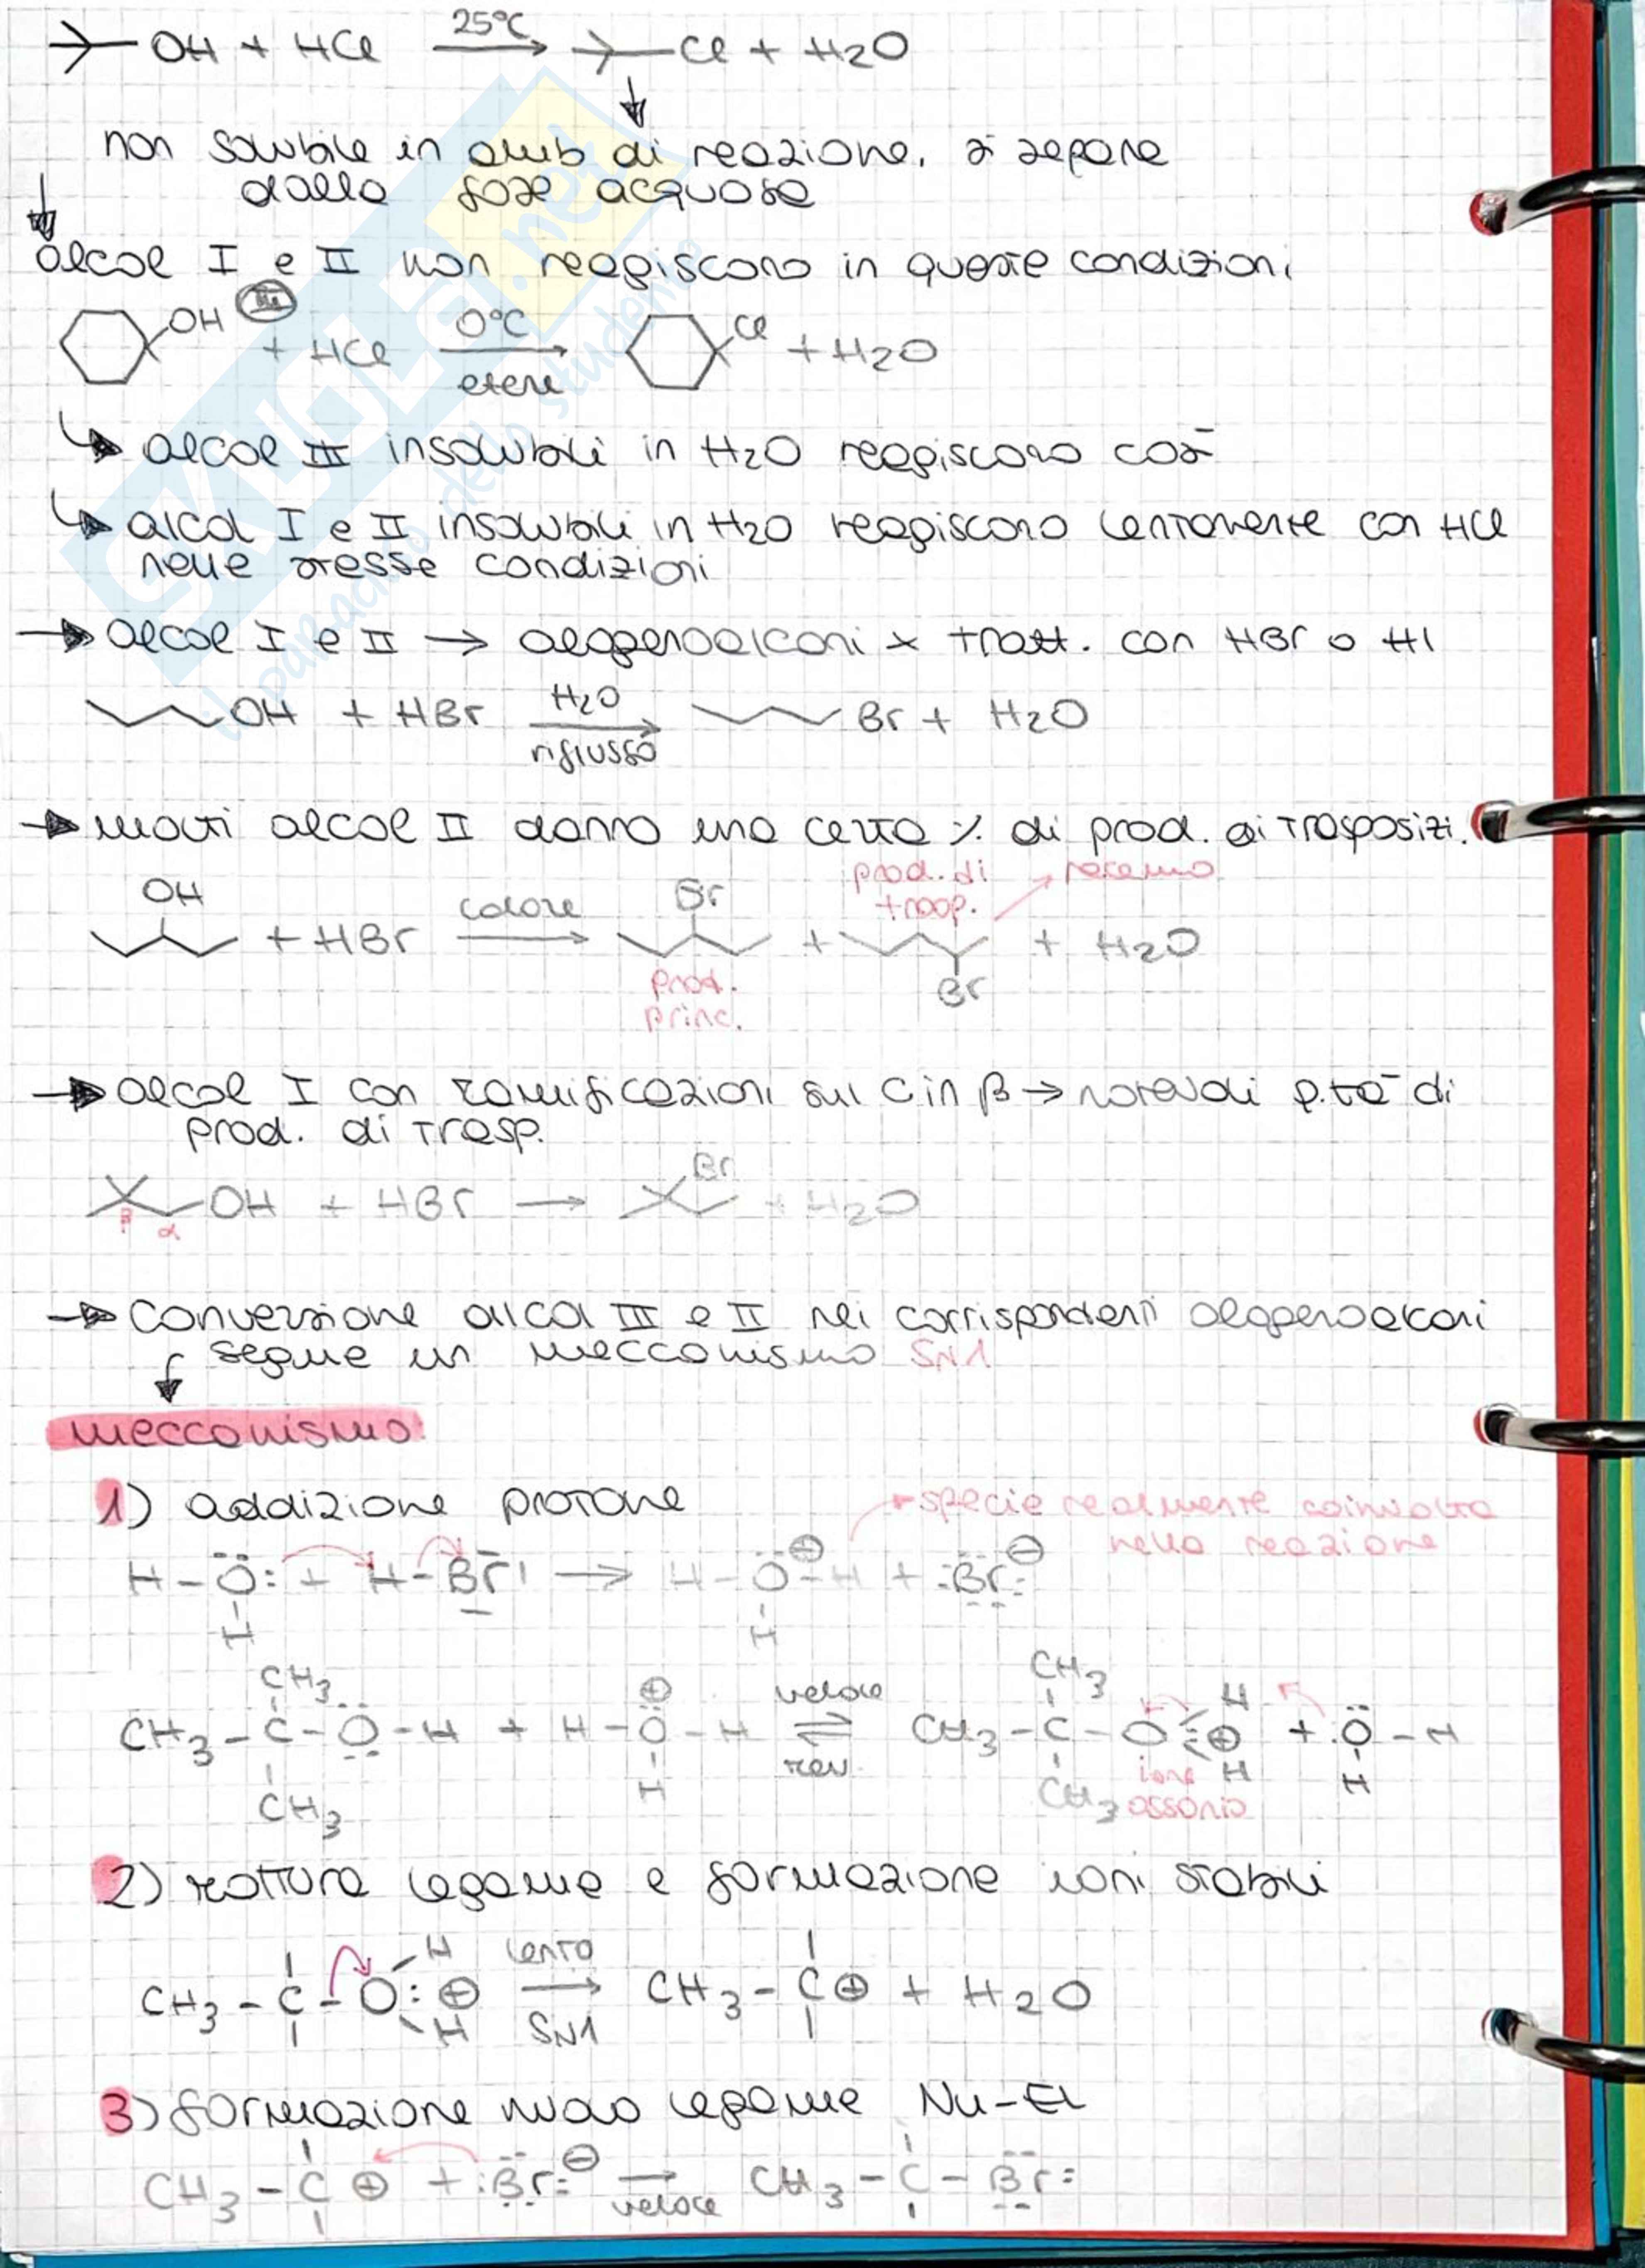 OH + HCl 25°C Cl + H2O
non solubile in amb di reazione, si separa
dalla fase acquosa
alcol I e II non reagiscono in queste condizioni
OH III + HCl 0°C etere Cl + H2O
alcol III insolubili in H2O reagiscono così
alcol I e II insolubili in H2O reagiscono lentamente con HCl
nelle stesse condizioni
alcol I e II → alogenoalcani x tratt. con HBr o HI
OH + HBr H2O riflusso Br + H2O
molti alcol II danno una certa % di prod. di trasposizi.
prod. di trasp. racemo
OH + HBr calore Br + Br + H2O
prod. princ.
alcol I con ramificazioni sul C in β → notevoli q.tà di
prod. di trasp.
OH + HBr → Br + H2O
β α
Conversione alcol III e II nei corrispondenti alogenoalcani
segue un meccanismo SN1
meccanismo:
1) addizione protone
specie realmente coinvolta
nella reazione
H-Ö: + H-Br → H-Ö-H ⊕ + :Br: ⊖
H H
CH3 CH3 H
CH3-C-O-H + H-Ö-H ⊕ veloce rev. CH3-C-O ⊕ + :Ö-H
CH3 H CH3 ione ossonio H H
2) rottura legame e formazione ioni stabili
CH3-C-O: ⊕ H H lento SN1 CH3-C ⊕ + H2O
3) formazione nuovo legame Nu-El
CH3-C ⊕ + :Br: ⊖ → veloce CH3-C-Br:
SKUOLA.net
il paradiso dello studente